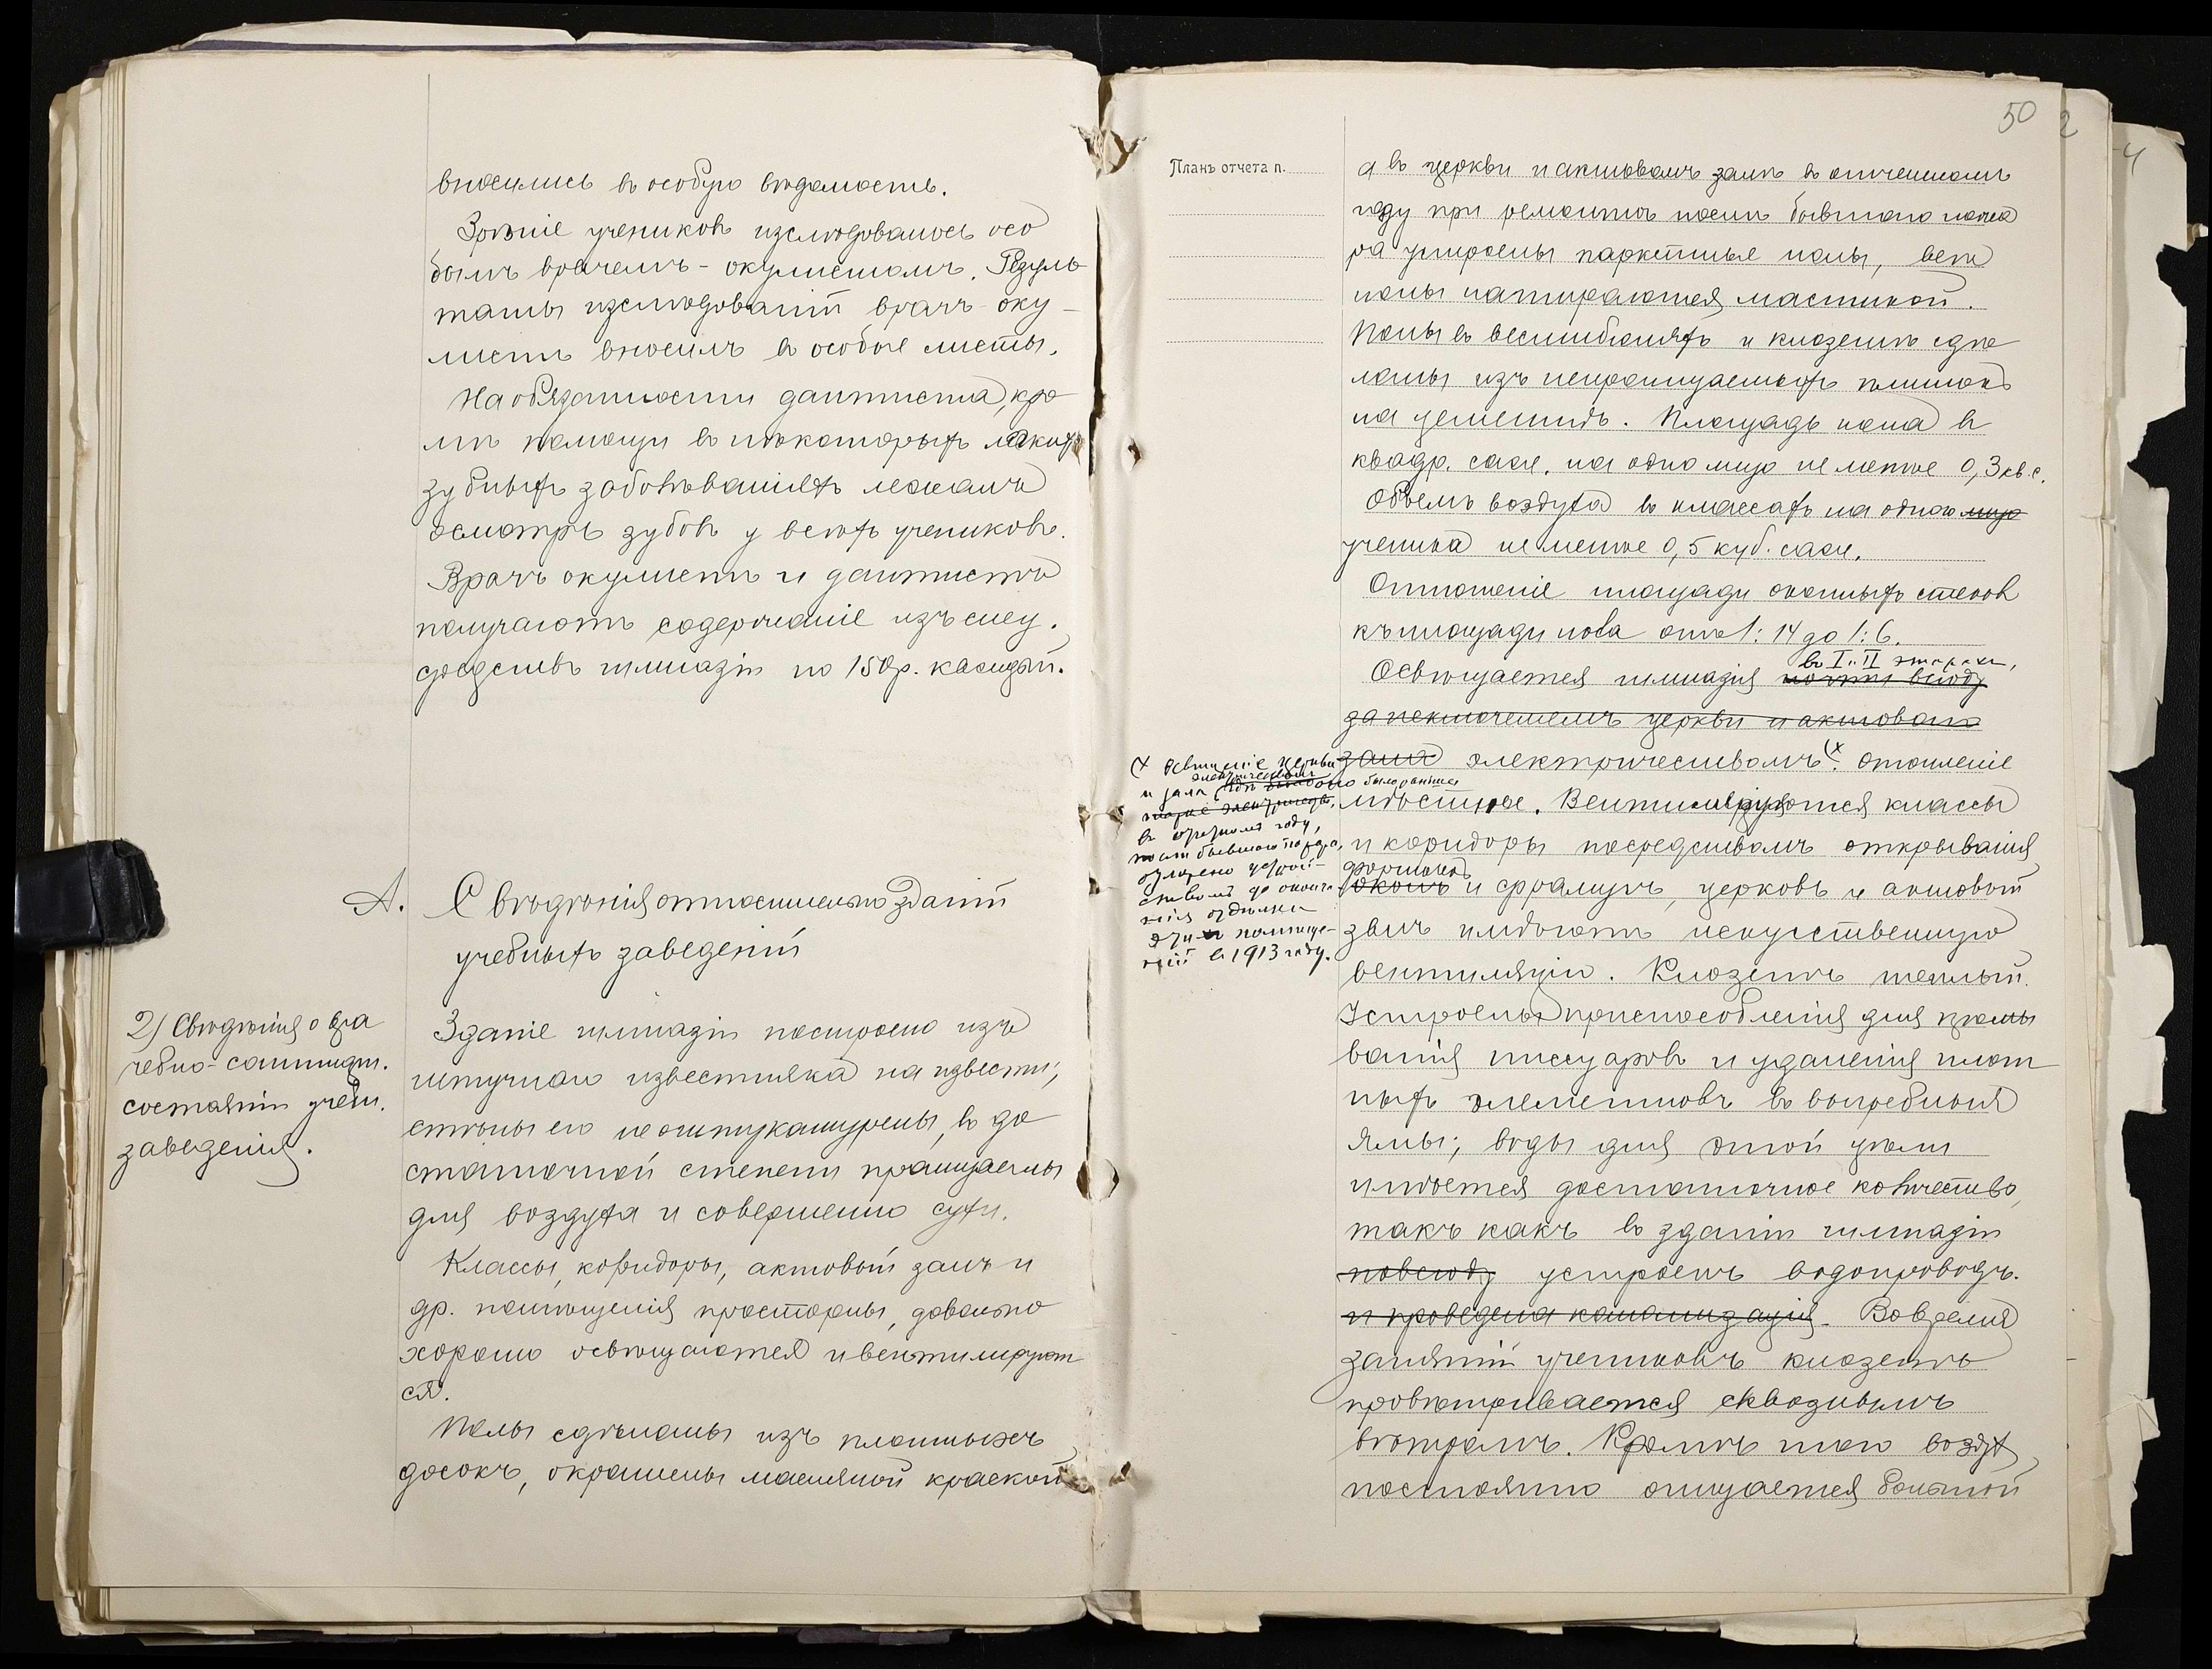 вносились въ особую вѣдомость.
Зрѣніе учениковъ изслѣдовалось осо
бымъ врачемъ-окулистомъ. Резуль
таты изслѣдованій врачъ-оку-
листъ вносилъ въ особые листы.
На обязанности дантиста, кро
мѣ помощи въ нѣкоторыхъ легкихъ
зубныхъ заболѣваніяхъ лежалъ
осмотръ зубовъ у всѣхъ учениковъ.
Врачъ окулистъ и дантистъ
получаютъ содержаніе изъ спец.
средствъ гимназіи по 150р. каждый.
А. Свѣдѣнія относительно зданій
учебныхъ заведеній
2) Свѣдѣнія о вра
чебно-санитарн.
состояніи учебн.
заведенія.
Зданіе гимназіи построено изъ
штучнаго известняка на извести;
стѣны его не оштукатурены, въ до
статочной степени проницаемы
для воздуха и совершенно сухи.
Классы, коридоры, актовый залъ и
др. помѣщенія просторны, довольно
хорошо освѣщаются и вентилируют
ся.
Полы сдѣланы изъ плотныхъ
досокъ, окрашены масляной краской,
50
2
4
Планъ отчета п.
а въ церкви и актовомъ залѣ въ отчетномъ
году при ремонтѣ послѣ бывшаго пожа
ра устроены паркетные полы, всѣ
полы натираются мастикой.
Полы въ вестибюляхъ и клозетѣ сдѣ
ланы изъ непроницаемыхъ плитокъ
на цементѣ. Площадь пола въ
квадр. саж. на одно лицо не менѣе 0,3 кв. с.
Объемъ воздуха въ классахъ на одного лицо
ученика не менѣе 0,5 куб. саж.
Отношеніе площади оконныхъ стеколъ
къ площади пола отъ 1:14 до 1:6.
въ I и II этажахъ,
Освѣщается гимназія почти всюду
за исключеніемъ церкви и актоваго
зала электричествомъ (х. Отопленіе
мѣстное. Вентилируются классы
и коридоры посредствомъ открыванія
форточекъ
оконъ и фрамугъ, церковь и актовый
залъ имѣютъ искусственную
вентиляцію. Клозетъ теплый.
Устроены приспособленія для промы
ванія писсуаровъ и удаленія плот
ныхъ элементовъ въ выгребныя
ямы; воды для этой цѣли
имѣется достаточное количество,
такъ какъ въ зданіи гимназіи
повсюду устроенъ водопроводъ.
и проведена канализація. Во время
занятій учениковъ клозетъ
провѣтривается сквознымъ
вѣтромъ. Кромѣ того воздух
постоянно очищается большой
(х Освѣщеніе церкви
электричествомъ
и зала было раньше
въ отчетномъ году,
послѣ бывшаго пожара,
отложено устрой-
ствомъ до оконча
нія отдѣлки
этихъ помѣще-
ній въ 1913 году.